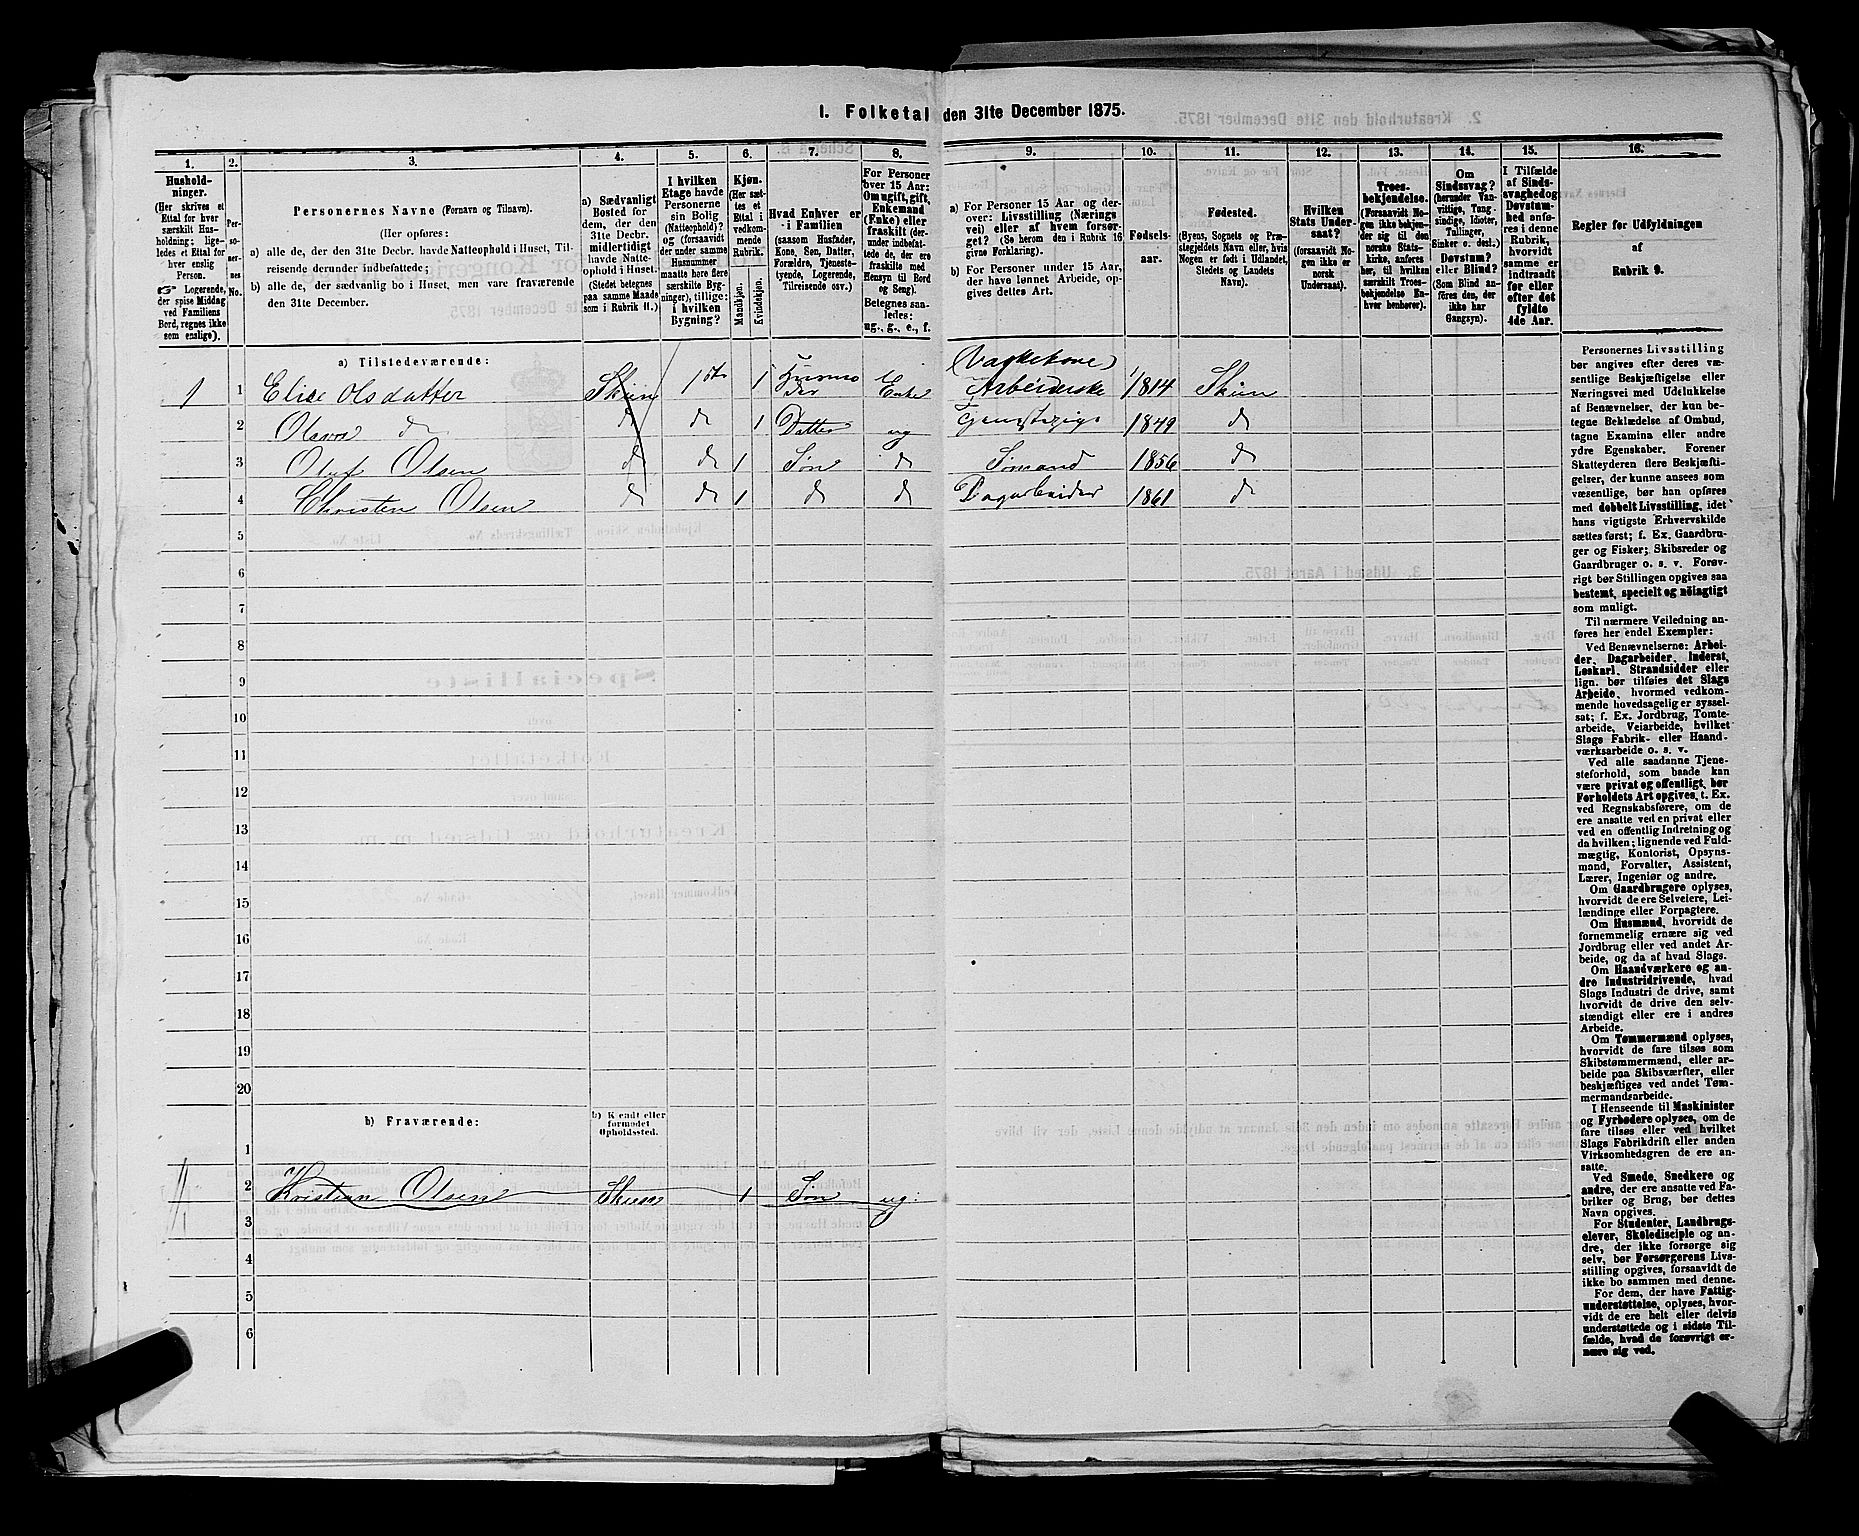 1. Folketal den 31te December 1875.
1. 2. 3. 4. 5. 6. 7. 8. 9. 10. 11. 12. 13. 14. 15. 16.
Hushold-
ninger.
(Her skrives et
Ettal for hver
særskilt Hus-
holdning; lige-
ledes et Ettal for
hver enslig
Person.
☞ Logerende,
der spise Middag
ved Familiens
Bord, regnes ikke
som enslige).
Per-
so-
ner-
nes
No.
Personernes Navne (Fornavn og Tilnavn).
(Her opføres:
a) alle de, der den 31te Decbr. havde Natteophold i Huset, Til-
reisende derunder indbefattede;
b) alle de, der sædvanlig bo i Huset, men vare fraværende
den 31te December.
a) Sædvanligt
Bosted for
dem, der den
31te Decbr.
midlertidigt
havde Natte-
ophold i Huset.
(Stedet betegnes
paa samme Maade
som i Rubrik 11.)
I hvilken
Etage havde
Personerne
sin Bolig
(Natteophold)?
og (forsaavidt
der under samme
Husnummer
maatte høre flere
særskilte Byg-
ninger), tillige:
i hvilken
Bygning?
Kjøn.
(Her sæt-
tes et
Ettal i
vedkom-
mende
Rubrik.
Mandkjøn.
Kvindekjøn.
Hvad Enhver er
i Familien
(saasom Husfader,
Kone, Søn, Datter,
Forældre, Tjeneste-
tyende, Logerende,
Tilreisende osv.)
For Personer
over 15 Aar:
Om ugift, gift,
Enkemand
(Enke) eller
fraskilt (der-
under indbefat-
tede de, der ere
fraskilte med
Hensyn til Bord
og Seng).
Betegnes saa-
ledes:
ug., g., e., f.
a) For Personer 15 Aar og der-
over: Livsstilling (Nærings
vei) eller af hvem forsør-
get? (Se herom den i Rubrik 16
givne Forklaring).
b) For Personer under 15 Aar,
der have lønnet Arbeide, op-
gives dettes Art.
Fødsels-
aar.
Fødested.
(Byens, Sognets og Præ-
stegjeldets Navn eller, hvis
Nogen er født i Udlandet,
Stedets og Landets
Navn).
Hvilken
Stats Under-
saat?
(forsaavidt No-
gen ikke er
norsk
Undersaat).
Troes-
bekjendelse.
(Forsaavidt No-
gen ikke bekjen-
der sig til den
norske Stats-
kirke, anføres
her, til hvilken
særskilt Troes-
bekjendelse En-
hver henhører).
Om
Sindssvag?
(herunder Van-
vittige, Tung-
sindige, Idioter,
Tullinger,
Sinker o. desl.)
Døvstum?
eller Blind?
(Som Blind an-
føres den, der
ikke har
Gangsyn).
I Tilfælde
af Sinds-
svaghed og
Døvstum-
hed anfø-
res i denne
Rubrik,
hvorvidt
samme er
indtraadt
før eller
efter det
fyldte
4de Aar.
Regler for Udfyldningen
af
Rubrik 9.
a) Tilstedeværende:
(Vaskekone)
1 1 Elise Olsdatter Skien 1ste 1 Enke Arbeiderske 1814 Skien
2 d d 1 Datter ug 1849 d
3 Oluf Olsen d d 1 Søn d Sømand 1856 d
4 Christen Olsen d d 1 d d Dagarbeider 1861 d
5
6
7
8
9
10
11
12
13
14
15
16
17
18
19
20
b) Fraværende:
b) Kjendt eller
formodet
Opholdssted.
1
2 Kristian Olsen Skien 1 Søn ug
3
4
5
6
Personernes Livsstilling
bør angives efter deres væ-
sentlige Beskjæftigelse eller
Næringsvei med Udelukkelse
af Benævnelser, der kun be-
tegne Beklædelse af Ombud,
tagne Examina eller andre
ydre Egenskaber. Forener
Skatteyderen flere Beskjæfti-
gelser, der kunne ansees som
væsentlige, bør han opføres
med dobbelt Livsstilling, idet
hans vigtigste Erhvervskilde
sættes først; f. Ex. Gaardbru-
ger og Fisker; Skibsreder og
Gaardbruger o. s. v. Forøv-
rigt bør Stillingen opgives saa
bestemt, specielt og nöiagtigt
som muligt.
Til nærmere Veiledning an-
føres her endel Exempler:
Ved Benævnelserne: Arbei-
der, Dagarbeider, Inderst,
Løskarl, Strandsidder eller
lign. bør tilføies det Slags
Arbeide, hvormed vedkom-
mende hovedsagelig er syssel-
sat; f. Ex. Jordbrug, Tomte-
arbeide, Veiarbeide, hvilket
Slags Fabrik- eller Haand-
værksarbeide o. s. v.
Ved alle saadanne Tjene-
steforhold, som baade kan
være privat og offentligt, bør
Forholdets Art opgives, t. Ex.
ved Regnskabsførere, om de
ere ansatte ved en privat eller
ved en offentlig Indretning og
da hvilken; lignende ved Fuld-
mægtig, Kontorist, Opsyns-
mand, Forvalter, Assistent,
Lærer, Ingeniør og andre.
Om Gaardbrugere oplyses,
hvorvidt de ere Selveiere, Lei-
lændinge eller Forpagtere.
Om Husmænd, hvorvidt de
fornemmelig ernære sig ved
Jordbrug eller ved andet Ar-
beide, og da af hvad Slags.
Om Haandværkere og an-
dre Industridrivende, hvad
Slags Industri de drive, samt
hvorvidt de drive den selv-
stændigt eller ere i andres
Arbeide.
Om Tømmermænd oplyses,
hvorvidt de fare tilsøs som
Skibstømmermænd, eller ar-
beide paa Skibsværfter, eller
beskjæftiges ved andet Tøm-
mermandsarbeide.
I Henseende til Maskinister
og Fyrbødere oplyses, om de
fare tilsøs eller ved hvilket
Slags Fabrikdrift eller anden
Virksomhedsgren de ere an-
satte.
Ved Smede, Snedkere og
andre, der ere ansatte ved Fa-
briker og Brug, bør dettes
Navn opgives.
For Studenter, Landbrugs-
elever, Skoledisciple og an-
dre, der ikke forsørge sig
selv, bør Forsørgerens Livs-
stilling opgives, forsaavidt de
ikke bo sammen med denne.
For dem, der have Fattig-
understøttelse, oplyses, hvor-
vidt de ere helt eller delvis
understøttede og i sidste Til-
fælde, hvad de forøvrigt er-
nære sig ved.